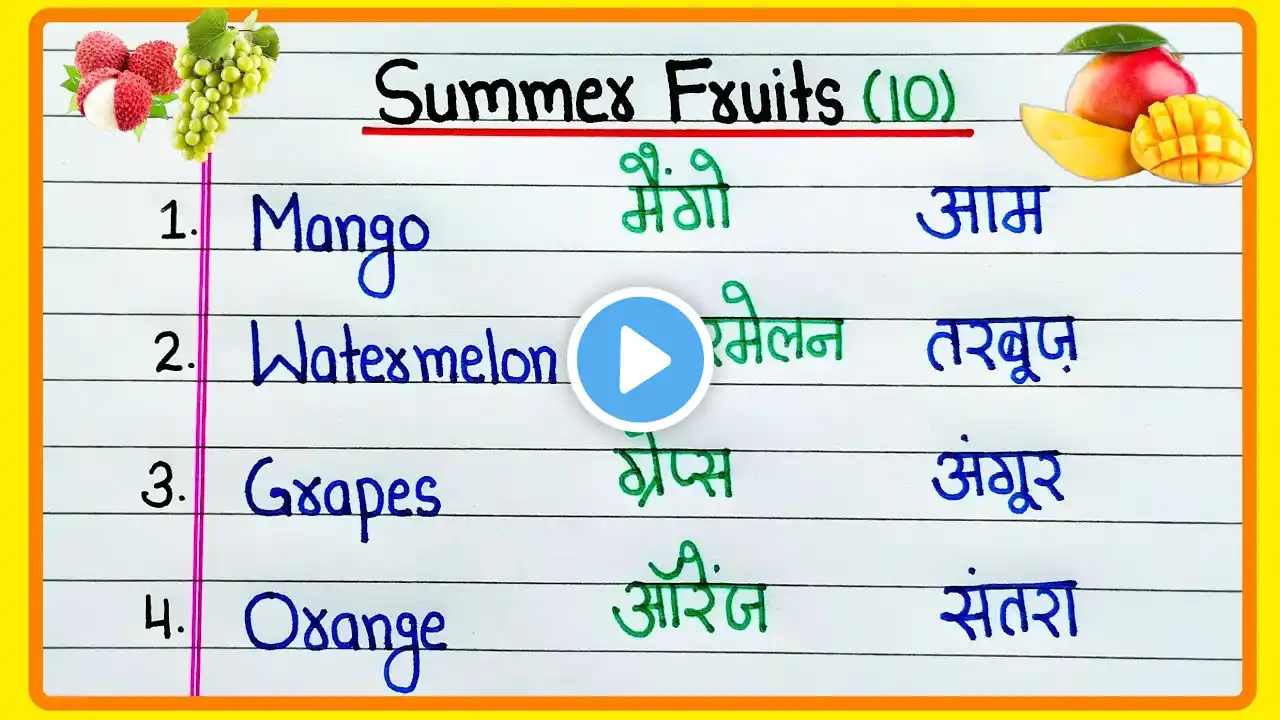 Summer Fruits (10)
1. Mango मैंगो आम
2. Watermelon रमेलन तरबूज़
3. Grapes ग्रेप्स अंगूर
4. Orange ऑरेंज संतरा